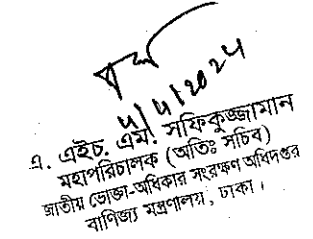 ৭/৭/2024
এ. এইচ. এম. সফিকুজ্জামান
মহাপরিচালক (অতিঃ সচিব)
জাতীয় ভোক্তা-অধিকার সংরক্ষণ অধিদপ্তর
বাণিজ্য মন্ত্রণালয়, ঢাকা।